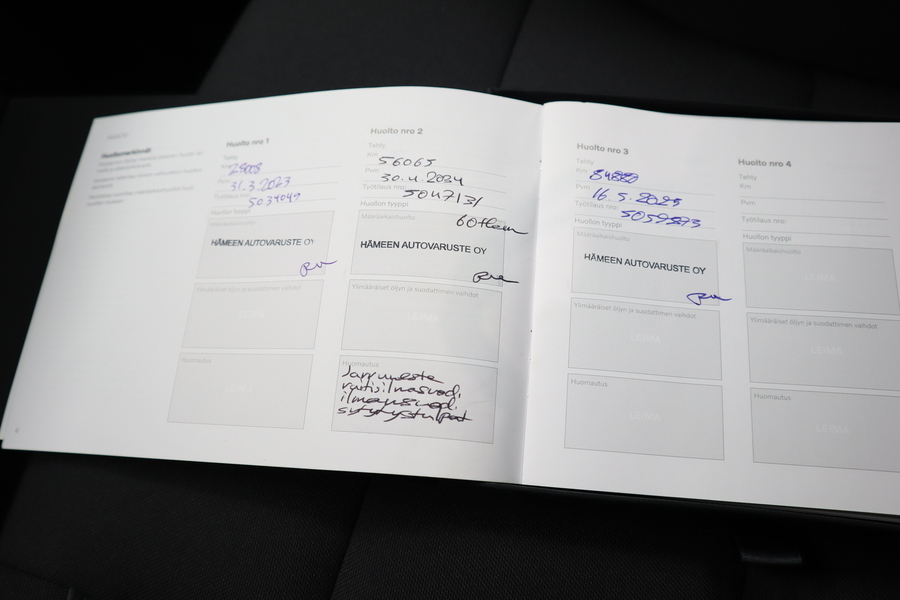 Huoltomerkinnät
Huolto nro 1
Tehty
Km
Pvm 31.3.2023
Työtilaus nro: 5034049
Huollon tyyppi
HÄMEEN AUTOVARUSTE OY
Ylimääräiset öljyn ja suodattimen vaihdot
LEIMA
Huomautus
LEIMA
Huolto nro 2
Tehty
Km 56065
Pvm 30.4.2024
Työtilaus nro: 5047131
Huollon tyyppi
Määräaikaishuolto
HÄMEEN AUTOVARUSTE OY
Ylimääräiset öljyn ja suodattimen vaihdot
LEIMA
Huomautus
Jarruneste
raitisilmasuod.
ilmansuod.
Huolto nro 3
Tehty
Km
Pvm 16.5.2025
Työtilaus nro:
Huollon tyyppi
Määräaikaishuolto
HÄMEEN AUTOVARUSTE OY
Ylimääräiset öljyn ja suodattimen vaihdot
LEIMA
Huomautus
LEIMA
Huolto nro 4
Tehty
Km
Pvm
Työtilaus nro:
Huollon tyyppi
Määräaikaishuolto
LEIMA
Ylimääräiset öljyn ja suodattimen vaihdot
LEIMA
Huomautus
LEIMA